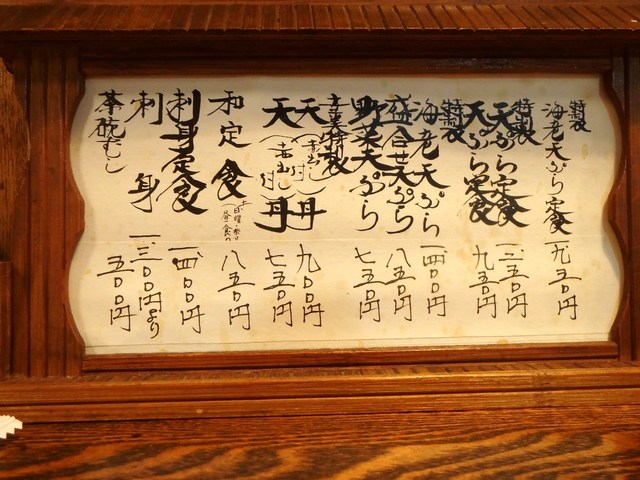 特製 海老天ぷら定食 一、九五〇円
特製 天ぷら定食 一、二五〇円
天ぷら定食 九五〇円
特製 海老天ぷら 一、四〇〇円
盛合せ天ぷら 八五〇円
野菜天ぷら 七五〇円
特製 天丼(赤出し付) 九〇〇円
天丼(赤出し付) 七五〇円
和定食 八五〇円
刺身定食 一、四〇〇円
刺身 一、三〇〇円より
茶碗むし 五〇〇円